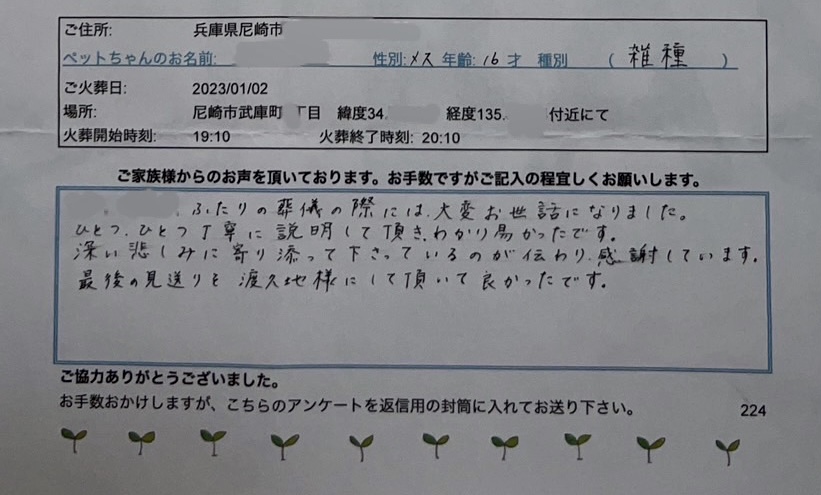 ご住所: 兵庫県尼崎市
ペットちゃんのお名前: 性別:メス 年齢:16才 種別 ( 雑種 )
ご火葬日: 2023/01/02
場所: 尼崎市武庫町 丁目 緯度34. 経度135. 付近にて
火葬開始時刻: 19:10 火葬終了時刻: 20:10
ご家族様からのお声を頂いております。お手数ですがご記入の程宜しくお願いします。
ふたりの葬儀の際には、大変お世話になりました。
ひとつ、ひとつ丁寧に説明して頂き、わかり易かったです。
深い悲しみに寄り添って下さっているのが伝わり、感謝しています。
最後の見送りを渡久地様にして頂いて良かったです。
ご協力ありがとうございました。
お手数おかけしますが、こちらのアンケートを返信用の封筒に入れてお送り下さい。 224